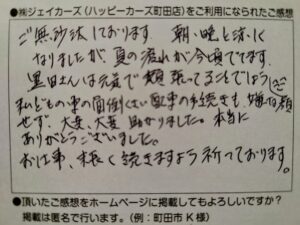 ●㈱ジェイカーズ(ハッピーカーズ町田店)をご利用になられたご感想
ご無沙汰しております 朝・晩と涼しく
なりましたが、夏の疲れが今頃でてます。
黒田さんは元気で頑張ってることでしょう
私どもの車の面倒くさい配車の手続きも、嫌な顔
せず、大変、大変助かりました。本当に
ありがとうございました。
お仕事、末長く続きますよう祈っております。
●頂いたご感想をホームページに掲載してもよろしいですか?
掲載は匿名で行います。(例:町田市 K 様)